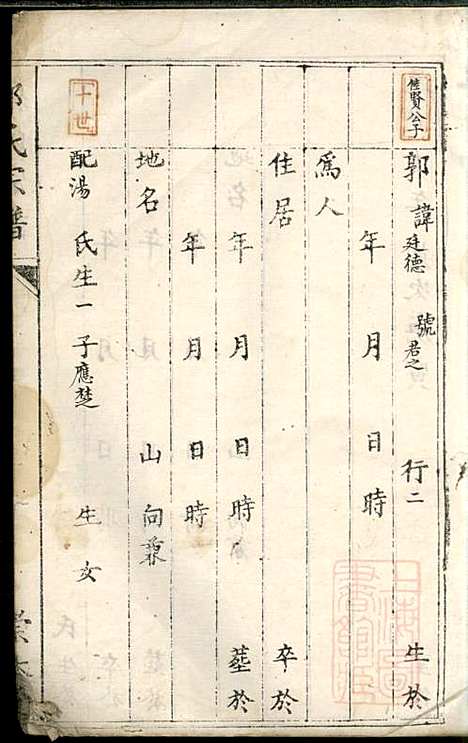 佳賢公子
郭諱廷德號君之行二生於
年月日時
為人
住居卒於
年月日時葬於
年月日時
地名山向兼
十世
配湯氏生一子應楚生女
氏宗譜